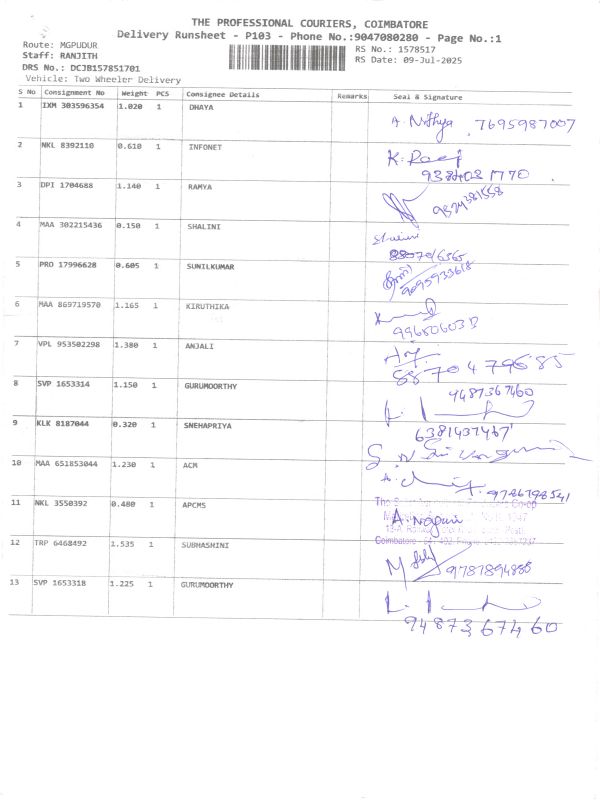 THE PROFESSIONAL COURIERS, COIMBATORE
Delivery Runsheet - P103 - Phone No.:9047080280 - Page No.:1
Route: MGPUDUR
RS No.: 1578517
Staff: RANJITH
RS Date: 09-Jul-2025
DRS No.: DCJB157851701
Vehicle: Two Wheeler Delivery
S No Consignment No Weight PCS Consignee Details Remarks Seal & Signature
1 IXM 303596354 1.020 1 DHAYA
A. Nithya 7695987007
2 NKL 8392110 0.610 1 INFONET
K.
3 DPI 1704688 1.140 1 RAMYA
9524381558
4 MAA 302215436 0.150 1 SHALINI
Shalini
5 PRO 17996628 0.605 1 SUNILKUMAR
9095933618
6 MAA 869719570 1.165 1 KIRUTHIKA
7 VPL 953502298 1.380 1 ANJALI
8870479685
8 SVP 1653314 1.150 1 GURUMOORTHY
9487367460
9 KLK 8187044 0.320 1 SNEHAPRIYA
6381437467
10 MAA 651853044 1.230 1 ACM
9786798541
11 NKL 3550392 0.480 1 APCMS
Co-op
A. Nagani
Coimbatore
12 TRP 6468492 1.535 1 SUBHASHINI
9787894885
13 SVP 1653318 1.225 1 GURUMOORTHY
9487367460